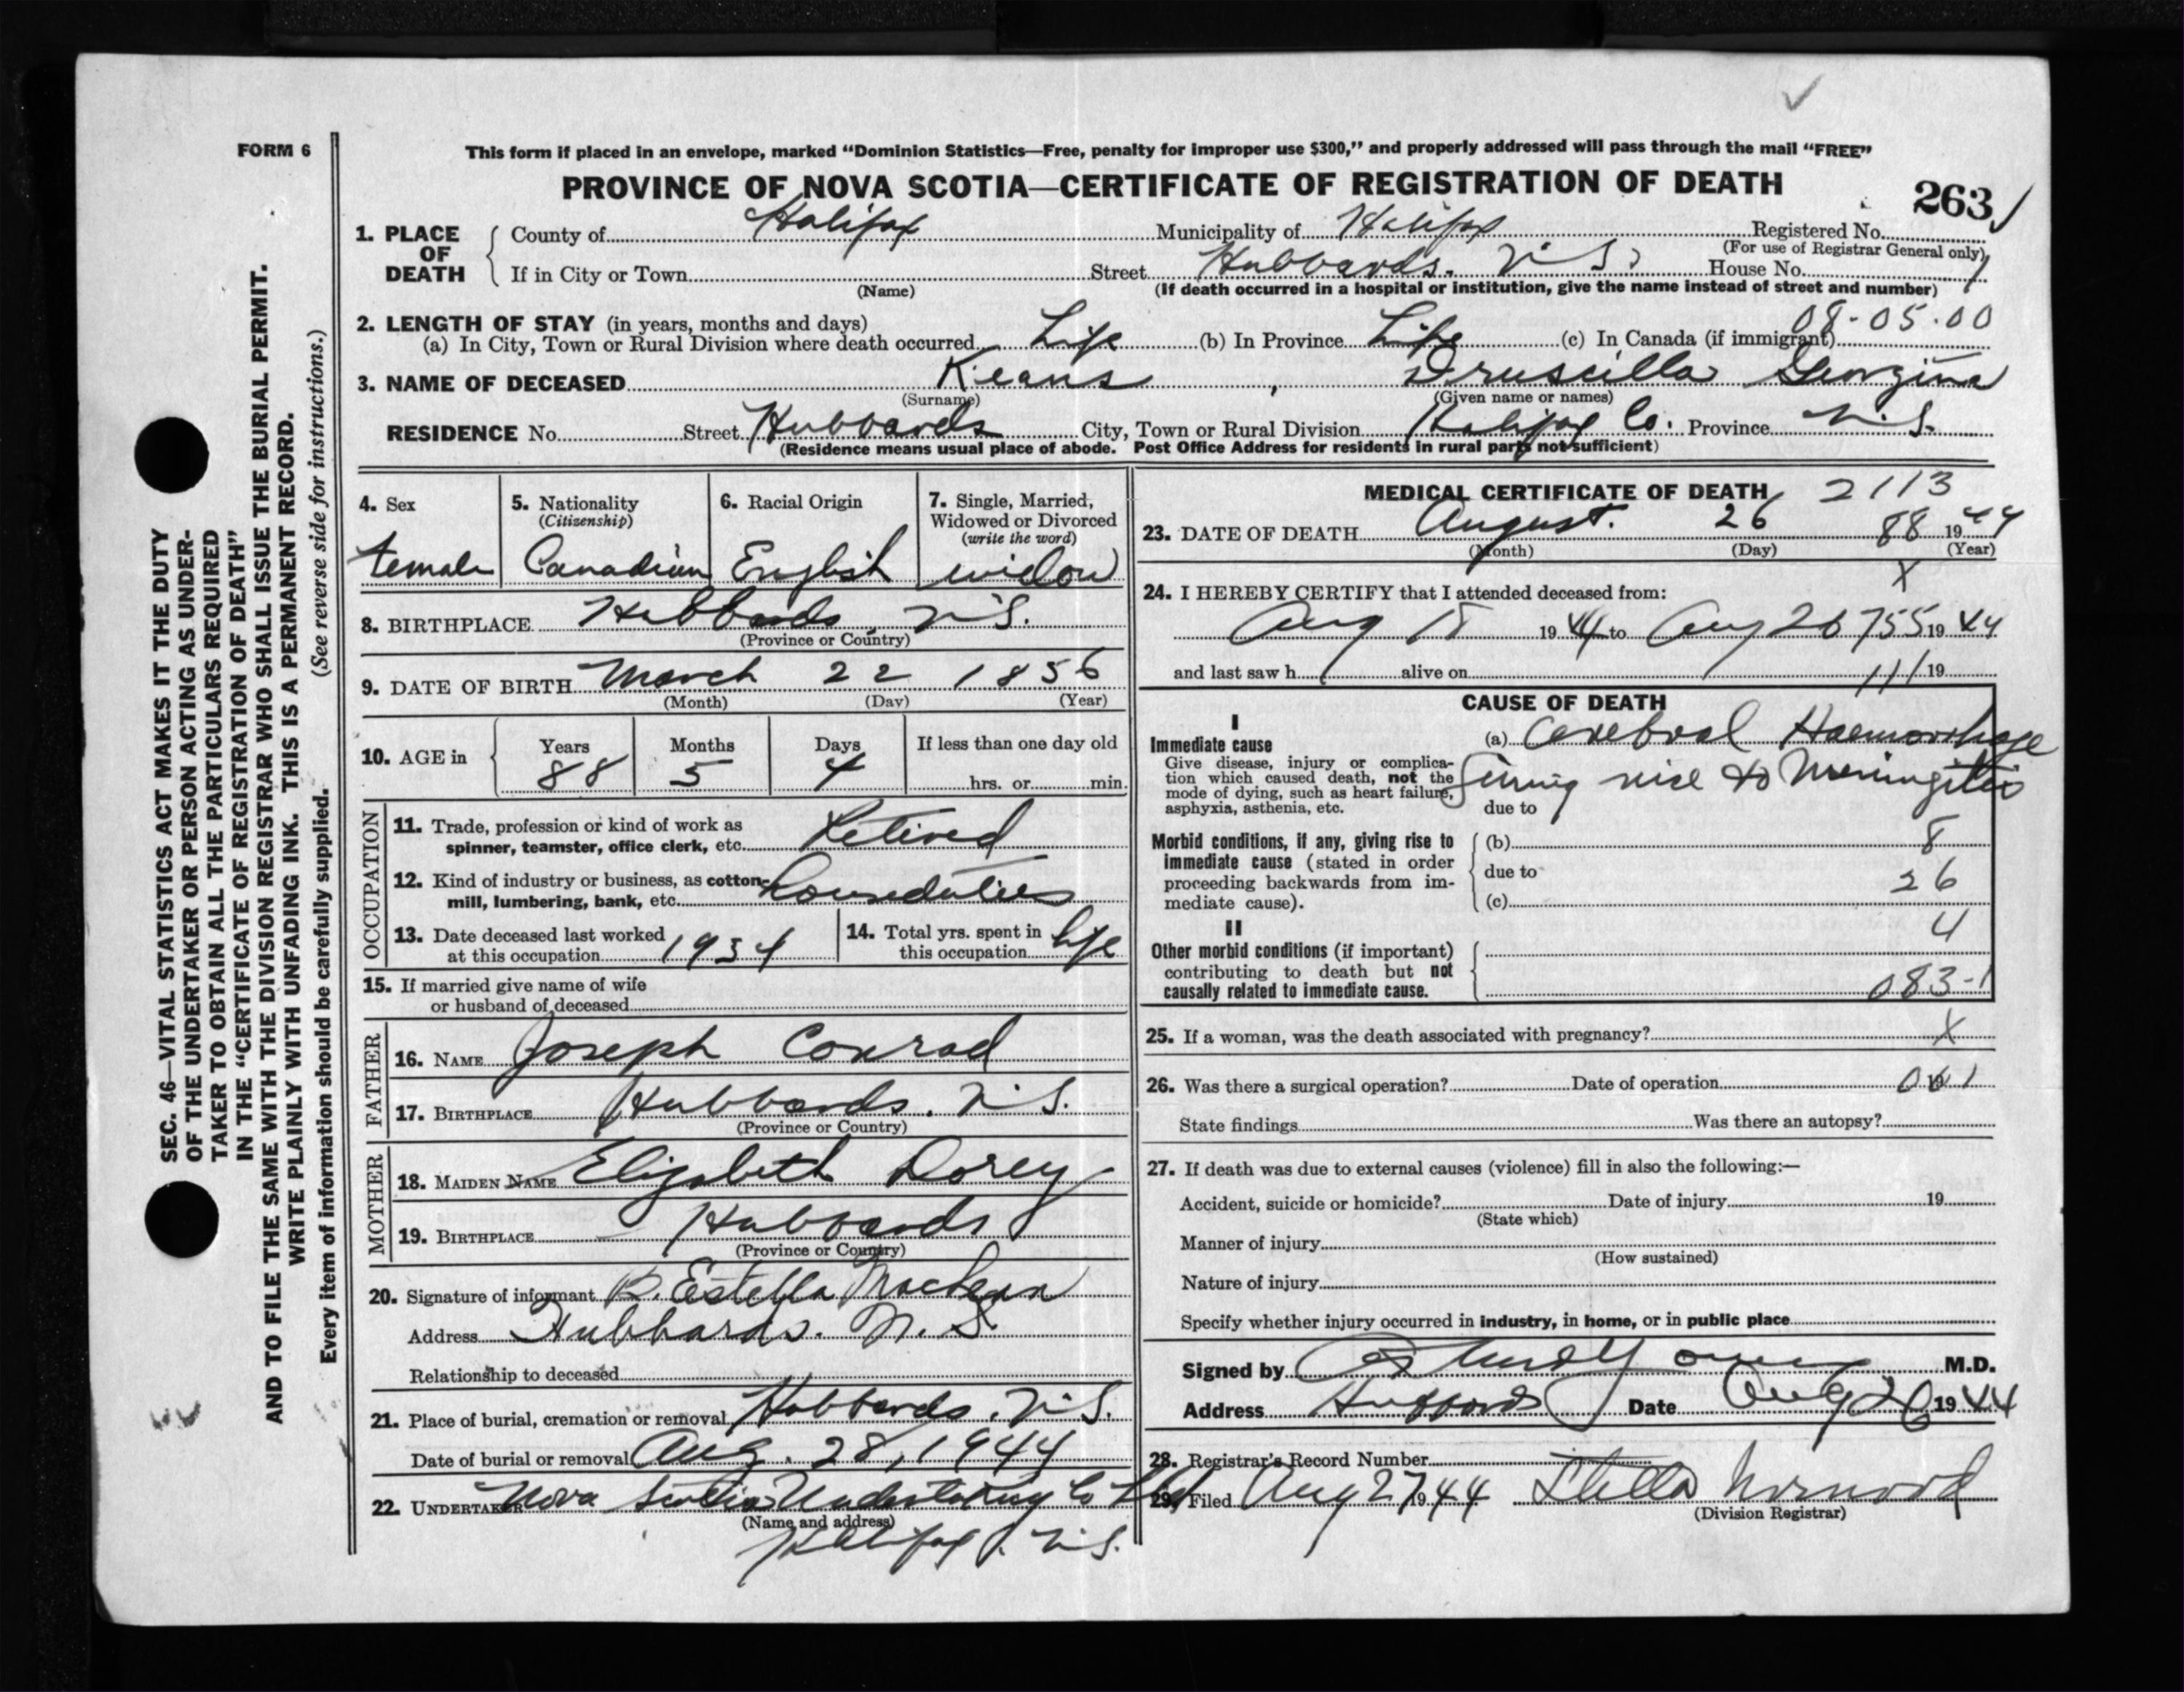 FORM 6
This form if placed in an envelope, marked “Dominion Statistics—Free, penalty for improper use $300,” and properly addressed will pass through the mail “FREE”
PROVINCE OF NOVA SCOTIA—CERTIFICATE OF REGISTRATION OF DEATH
263
1. PLACE OF DEATH
County of Halifax Municipality of Halifax Registered No.
(For use of Registrar General only)
If in City or Town Street Hubbards. N.S. House No.
(Name) (If death occurred in a hospital or institution, give the name instead of street and number)
2. LENGTH OF STAY (in years, months and days) 08-05-00
(a) In City, Town or Rural Division where death occurred Life (b) In Province Life (c) In Canada (if immigrant)
3. NAME OF DECEASED Keans, Druscilla Georgina
(Surname) (Given name or names)
RESIDENCE No. Street Hubbards City, Town or Rural Division Halifax Co. Province N.S.
(Residence means usual place of abode. Post Office Address for residents in rural parts not sufficient)
4. Sex
female
5. Nationality
(Citizenship)
Canadian
6. Racial Origin
English
7. Single, Married,
Widowed or Divorced
(write the word)
widow
8. BIRTHPLACE Hubbards, N.S.
(Province or Country)
9. DATE OF BIRTH March 22 1856
(Month) (Day) (Year)
10. AGE in Years Months Days If less than one day old
88 5 4 hrs. or min.
OCCUPATION
11. Trade, profession or kind of work as
spinner, teamster, office clerk, etc. Retired
12. Kind of industry or business, as cotton-
mill, lumbering, bank, etc. houseduties
13. Date deceased last worked
at this occupation 1934
14. Total yrs. spent in
this occupation life
15. If married give name of wife
or husband of deceased
FATHER
16. NAME Joseph Conrad
17. BIRTHPLACE Hubbards. N.S.
(Province or Country)
MOTHER
18. MAIDEN NAME Elizabeth Dorey
19. BIRTHPLACE Hubbards
(Province or Country)
20. Signature of informant Estella
Address Hubbards. N.S.
Relationship to deceased
21. Place of burial, cremation or removal Hubbards. N.S.
Date of burial or removal Aug. 28, 1944
22. UNDERTAKER Nova Scotia Undertaking Co Ltd
(Name and address)
Halifax, N.S.
MEDICAL CERTIFICATE OF DEATH 2113
23. DATE OF DEATH August. 26 88 1944
(Month) (Day) (Year)
X
24. I HEREBY CERTIFY that I attended deceased from:
Aug 1944 to Aug 26 755 1944
and last saw h alive on 111 19
CAUSE OF DEATH
I
Immediate cause
Give disease, injury or complica-
tion which caused death, not the
mode of dying, such as heart failure,
asphyxia, asthenia, etc.
(a) Cerebral Haemorrhage
Giving rise to Meningitis
due to
Morbid conditions, if any, giving rise to
immediate cause (stated in order
proceeding backwards from im-
mediate cause).
(b) 8
due to
(c) 26
II
4
Other morbid conditions (if important)
contributing to death but not
causally related to immediate cause.
083-1
25. If a woman, was the death associated with pregnancy? X
26. Was there a surgical operation? Date of operation 19
State findings Was there an autopsy?
27. If death was due to external causes (violence) fill in also the following:—
Accident, suicide or homicide? Date of injury 19
(State which)
Manner of injury
(How sustained)
Nature of injury
Specify whether injury occurred in industry, in home, or in public place
Signed by M.D.
Address Hubbards Date Aug 26 1944
28. Registrar's Record Number
29. Filed Aug 27 1944 Stella Norwood
(Division Registrar)
SEC. 46—VITAL STATISTICS ACT MAKES IT THE DUTY
OF THE UNDERTAKER OR PERSON ACTING AS UNDER-
TAKER TO OBTAIN ALL THE PARTICULARS REQUIRED
IN THE “CERTIFICATE OF REGISTRATION OF DEATH”
AND TO FILE THE SAME WITH THE DIVISION REGISTRAR WHO SHALL ISSUE THE BURIAL PERMIT.
WRITE PLAINLY WITH UNFADING INK. THIS IS A PERMANENT RECORD.
Every item of information should be carefully supplied. (See reverse side for instructions.)